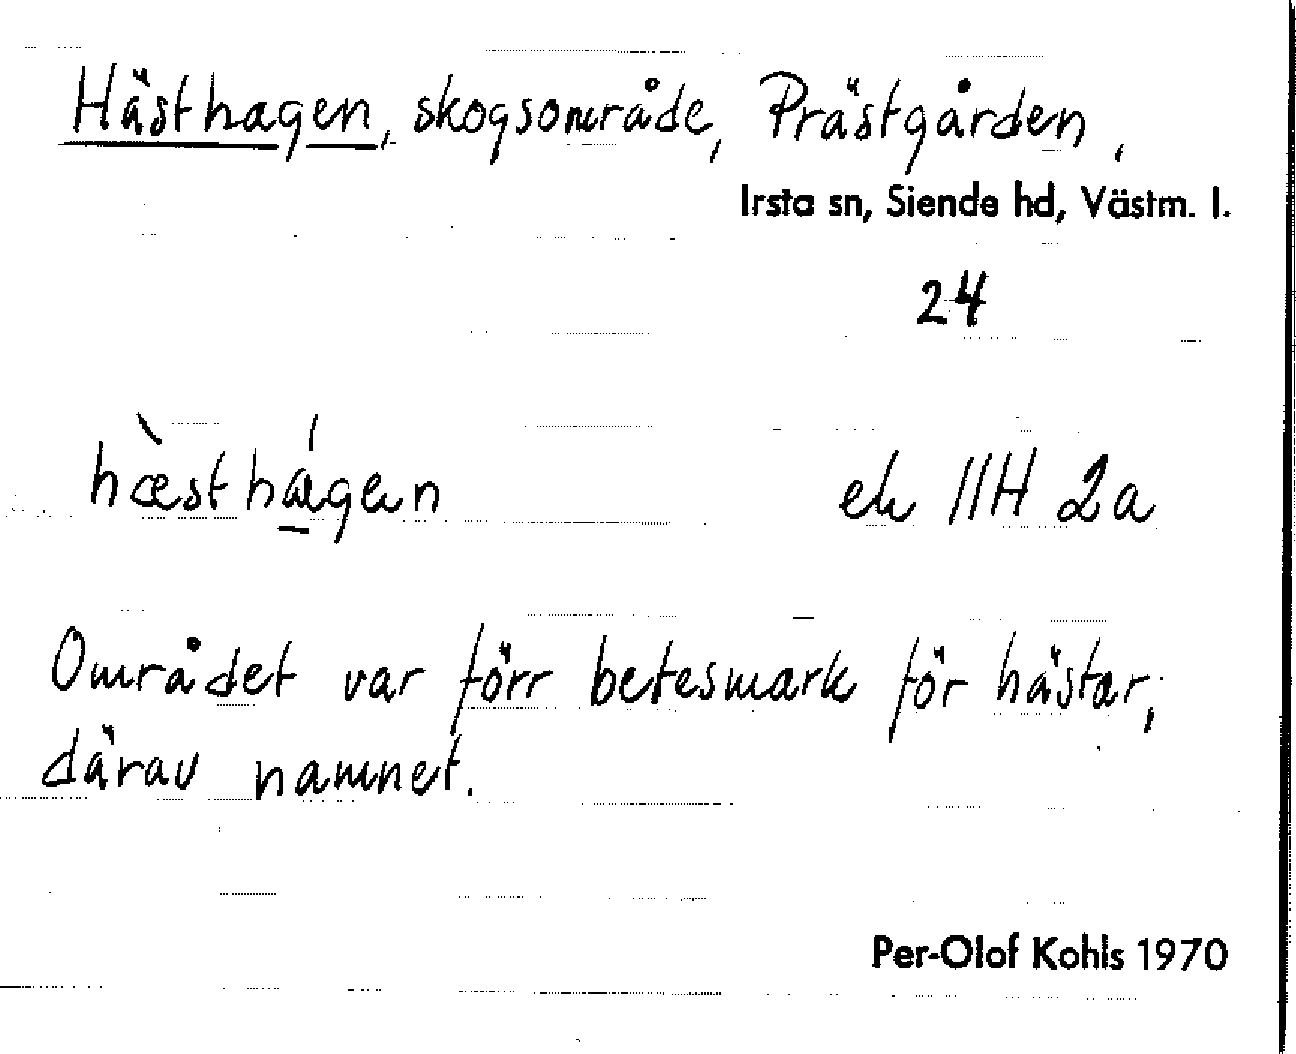 Hästhagen, skogsområde, Prästgården,
Irsta sn, Siende hd, Västm. l.
24
hæ̀sthágen ek 11H 2a
Området var förr betesmark för hästar,
därav namnet.
Per-Olof Kohls 1970